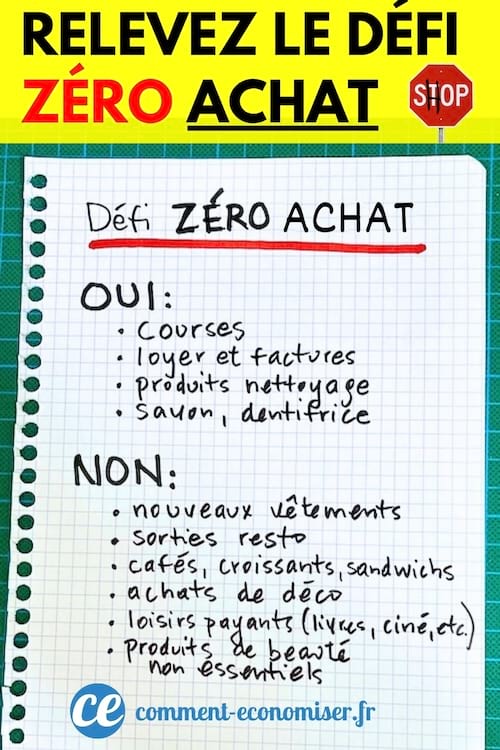 RELEVEZ LE DÉFI
ZÉRO ACHAT
SHOP
Défi ZÉRO ACHAT
OUI:
• courses
• loyer et factures
• produits nettoyage
• savon, dentifrice
NON:
• nouveaux vêtements
• sorties resto
• cafés, croissants, sandwichs
• achats de déco
• loisirs payants (livres, ciné, etc.)
• produits de beauté
non essentiels
ce comment-economiser.fr